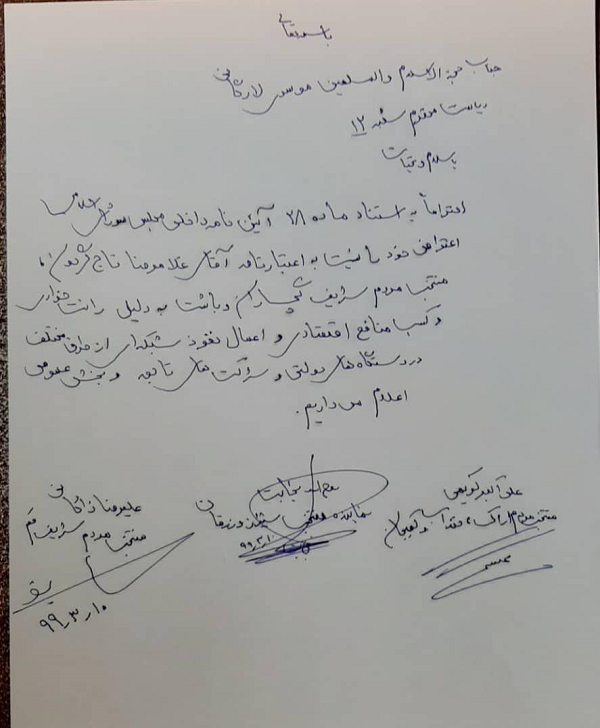 باسمه تعالی
جناب حجة الاسلام والمسلمین موسوی لارگانی
ریاست محترم شعبه ۱۲
باسلام و تحیات
احتراماً به استناد ماده ۲۸ آئین نامه داخلی مجلس شورای اسلامی
اعتراض خود را نسبت به اعتبارنامه آقای غلامرضا تاج گردون
منتخب مردم شریف گچساران و باشت به دلیل رانت خواری
و کسب منافع اقتصادی و اعمال نفوذ شبکه‌ای از طرق مختلف
در دستگاه های دولتی و شرکت های تابعه و بخش عمومی
اعلام می داریم.
علی اکبر کریمی
منتخب مردم اراک، خنداب و کمیجان
روح اله نجابت
نماینده منتخب شیراز و زرقان
۹۹/۳/۱۰
علیرضا زاکانی
منتخب مردم شریف قم
۹۹/۳/۱۰